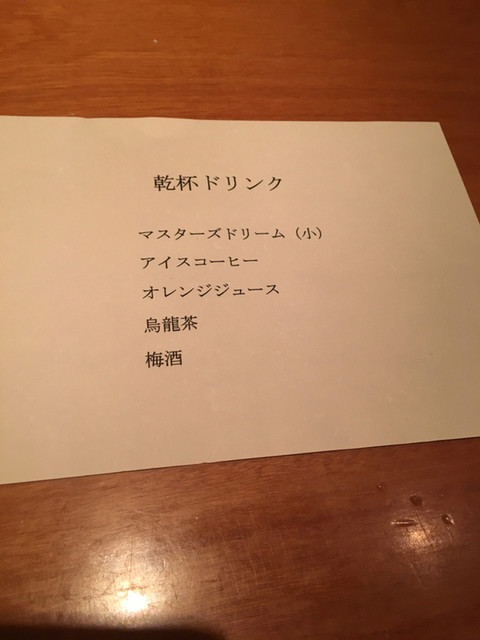 乾杯ドリンク
マスターズドリーム（小）
アイスコーヒー
オレンジジュース
烏龍茶
梅酒